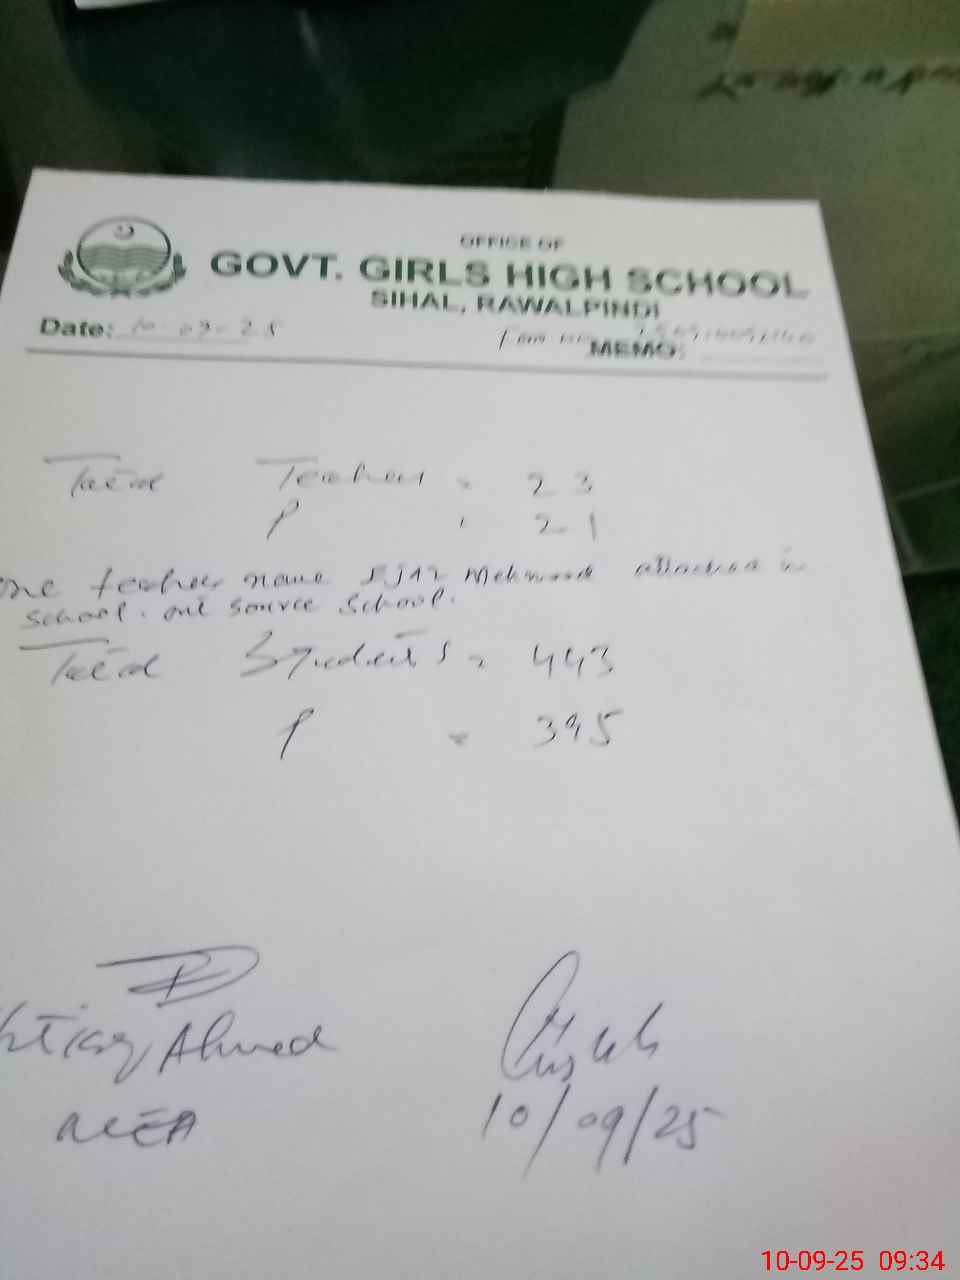 OFFICE OF
GOVT. GIRLS HIGH SCHOOL
SIHAL, RAWALPINDI
Date: 10-09-25
MEMO:
Total Teacher = 23
P = 21
one teacher name Mehmood attached in
school. one source school.
Total Students = 443
P = 395
Ahmed
10/09/25
10-09-25 09:34